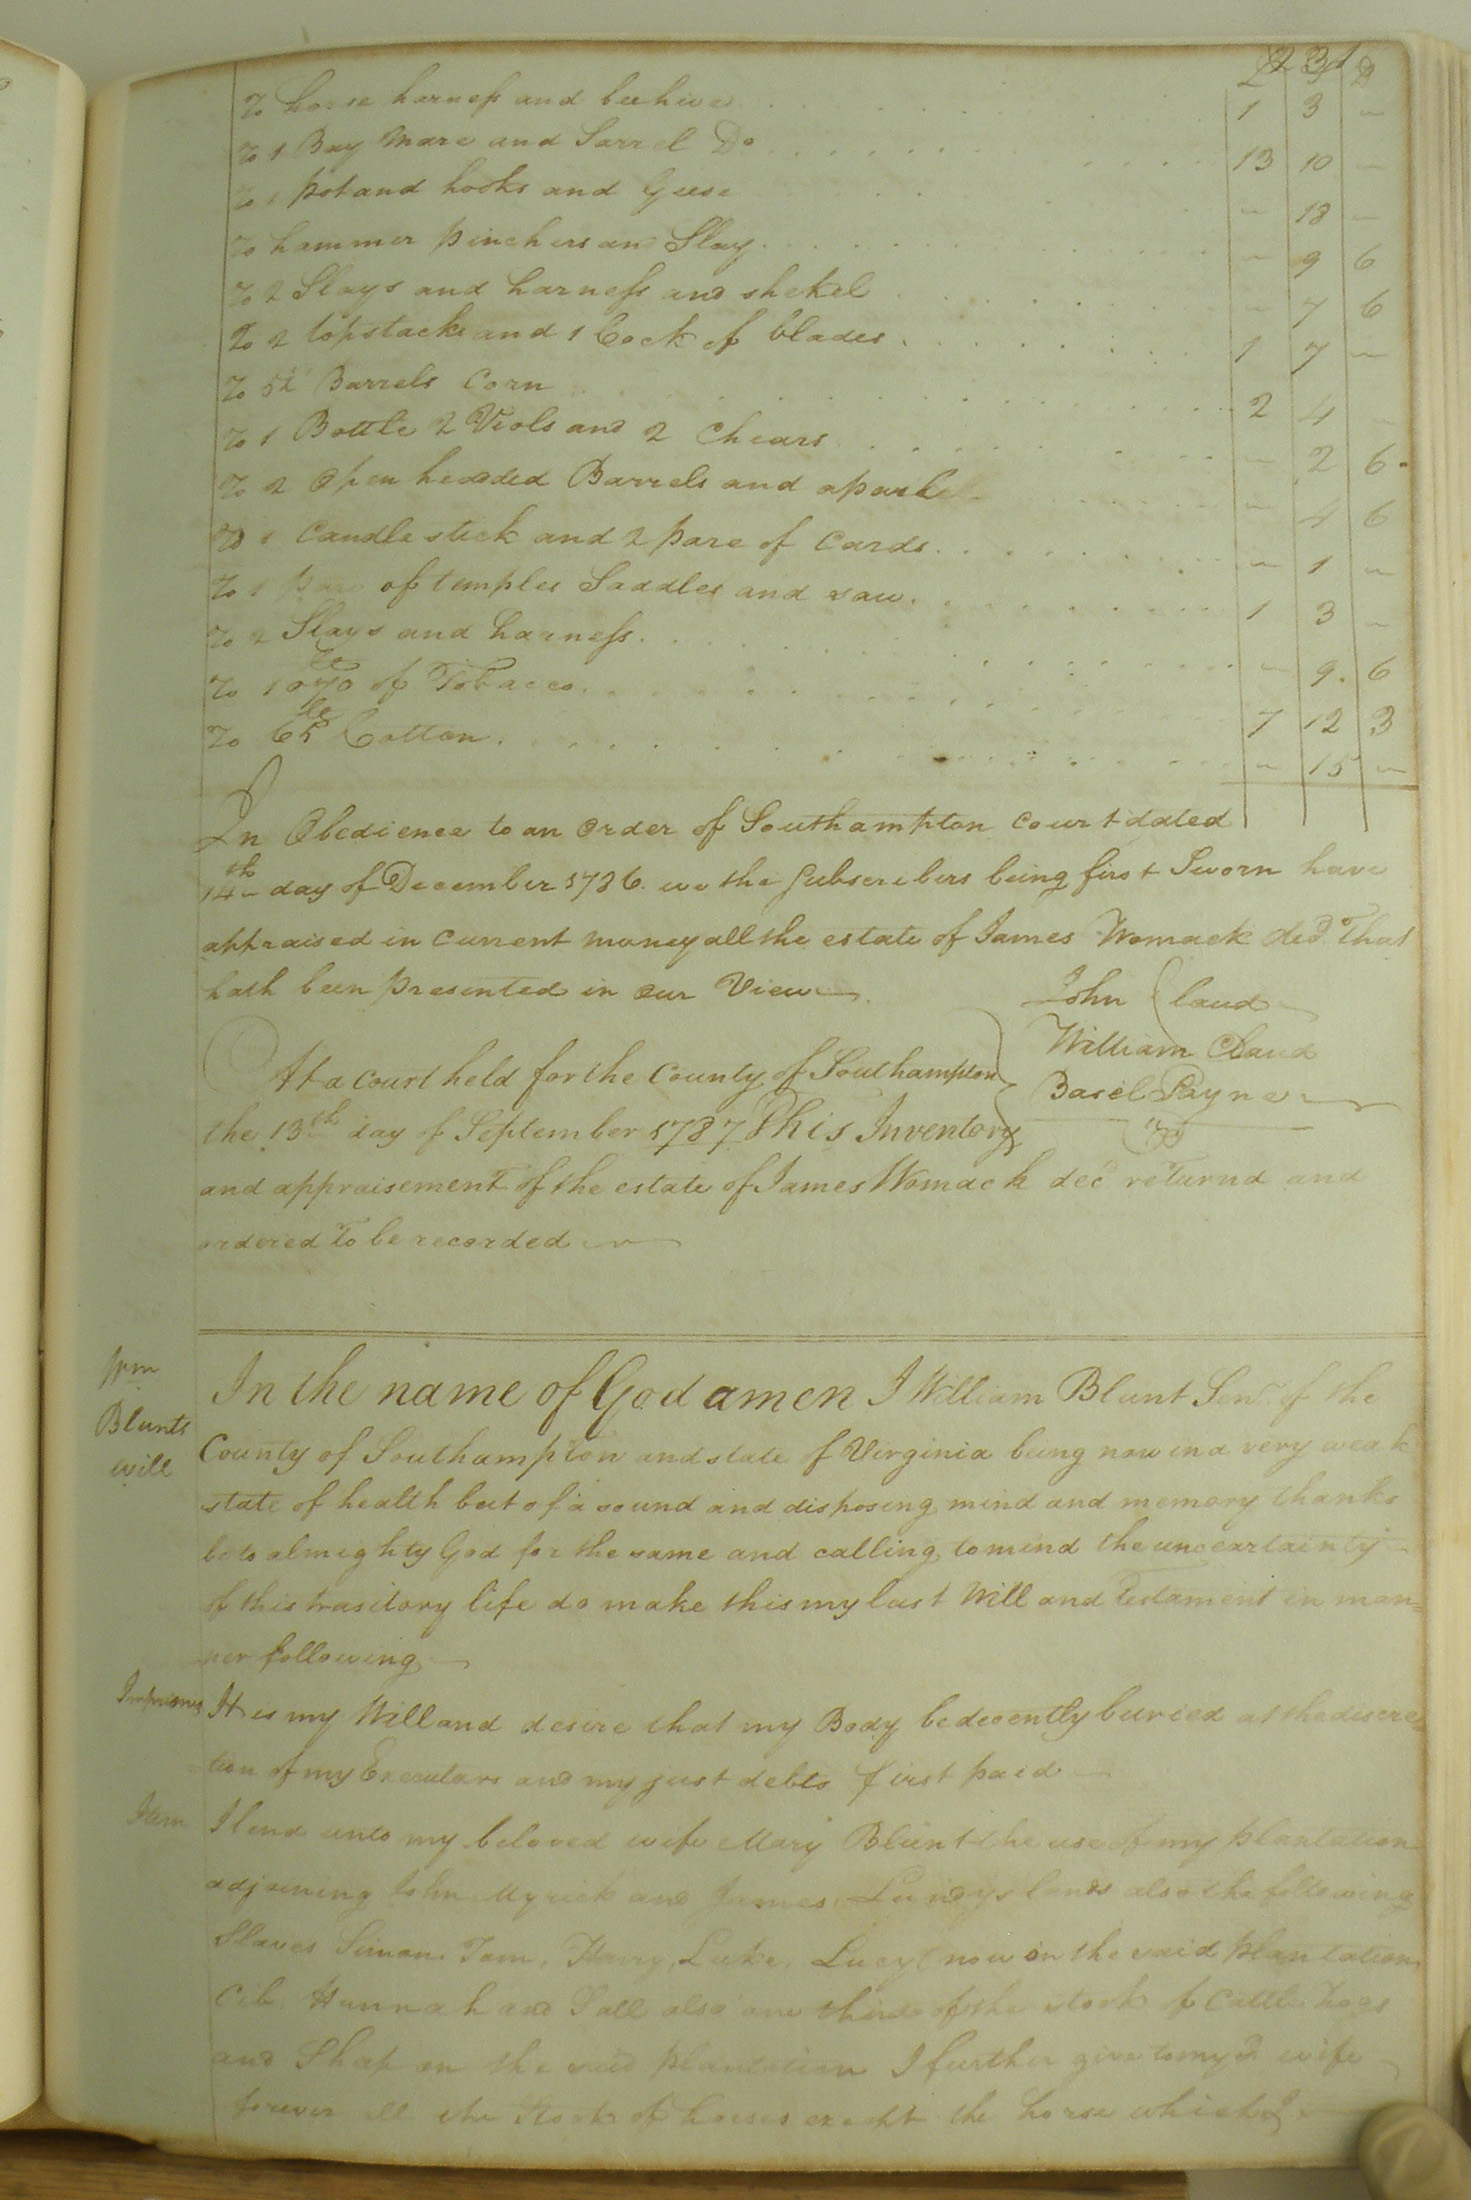 231
£ S D
To horse harness and beehive 1 3 –
To 1 Bay Mare and Sorrel Do 13 10 –
To 1 pot and hooks and Geese – 18 –
To hammer pinchers and Slay – 9 6
To 2 Slays and harness and shekel – 7 6
To 2 topstacks and 1 Cock of blades 1 7 –
To 5½ Barrels Corn 2 4 –
To 1 Bottle 2 Viols and 2 Chears – 2 6
To 2 Open headded Barrels and a – 4 6
To 1 Candle stick and 2 pare of Cards – 1 –
To 1 pare of temples Saddles and saw 1 3 –
To 2 Slays and harness – 9 6
To 1070 lb of Tobacco 7 12 3
To 65 lb Cotton – 15 –
In Obedience to an Order of Southampton Court dated
14th day of December 1786 we the Subscribers being first Sworn have
appraised in Current money all the estate of James Womack decd That
hath been presented in our View
John Claud
William Claud
Basel Payne
At a Court held for the County of Southampton
the 13th day of September 1787 This Inventory
and appraisement of the estate of James Womack decd returnd and
ordered To be recorded
Wm
Blunts
will
In the name of God amen I William Blunt Senr of the
County of Southampton and state of Virginia being now in a very weak
state of health but of a sound and disposing mind and memory thanks
be to almighty God for the same and calling to mind the uncertainty
of this trasitory life do make this my last Will and Testament in man=
ner following
Imprimis It is my Will and desire that my Body be decently buried at the discre=
tion of my Executors and my just debts first paid
Item I lend unto my beloved wife Mary Blunt the use of my plantation
adjoining John Myrick and James Lundys lands also the following
Slaves Simon, Tom, Harry, Luke, Lucy now on the said plantation
Cib, Hannah and Sall also one third of the stock of Cattle hogs
and Sheep on the said plantation I further give to my sd wife
forever all the Stock of horses except the horse which I